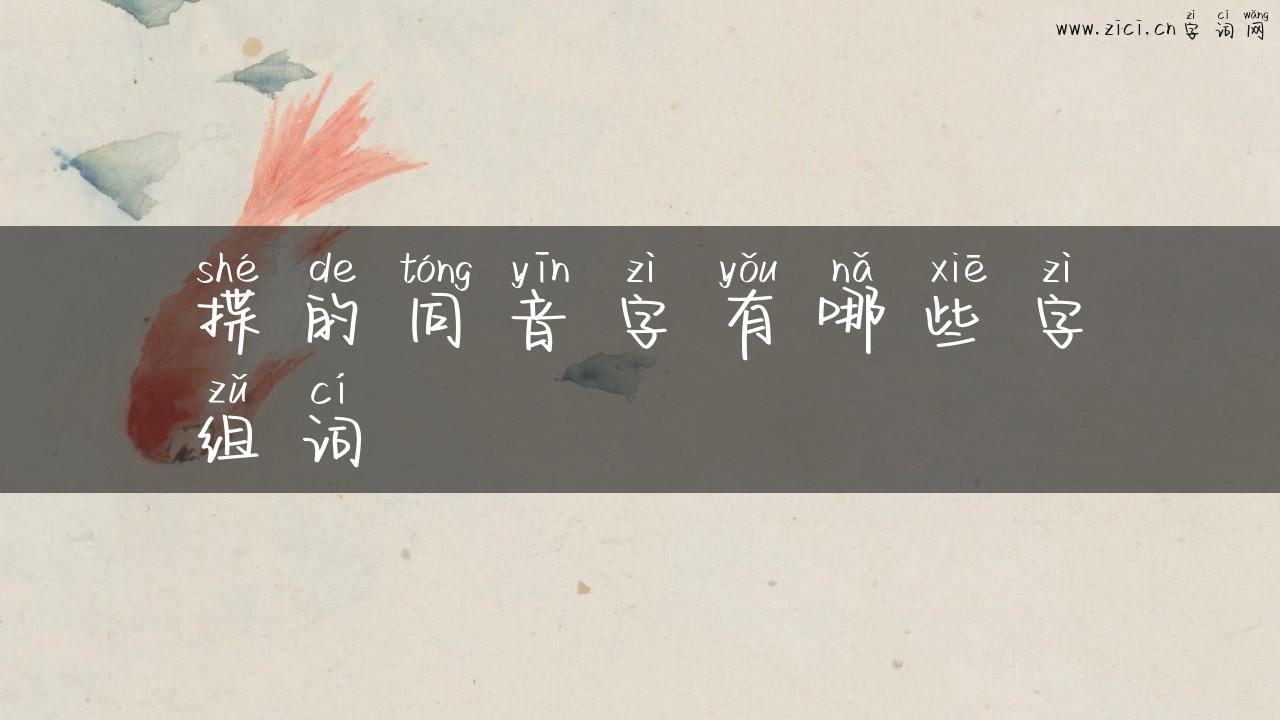 zì cí wǎng
www.zici.cn字词网
shé de tóng yīn zì yǒu nǎ xiē zì
揲的同音字有哪些字
zǔ cí
组词